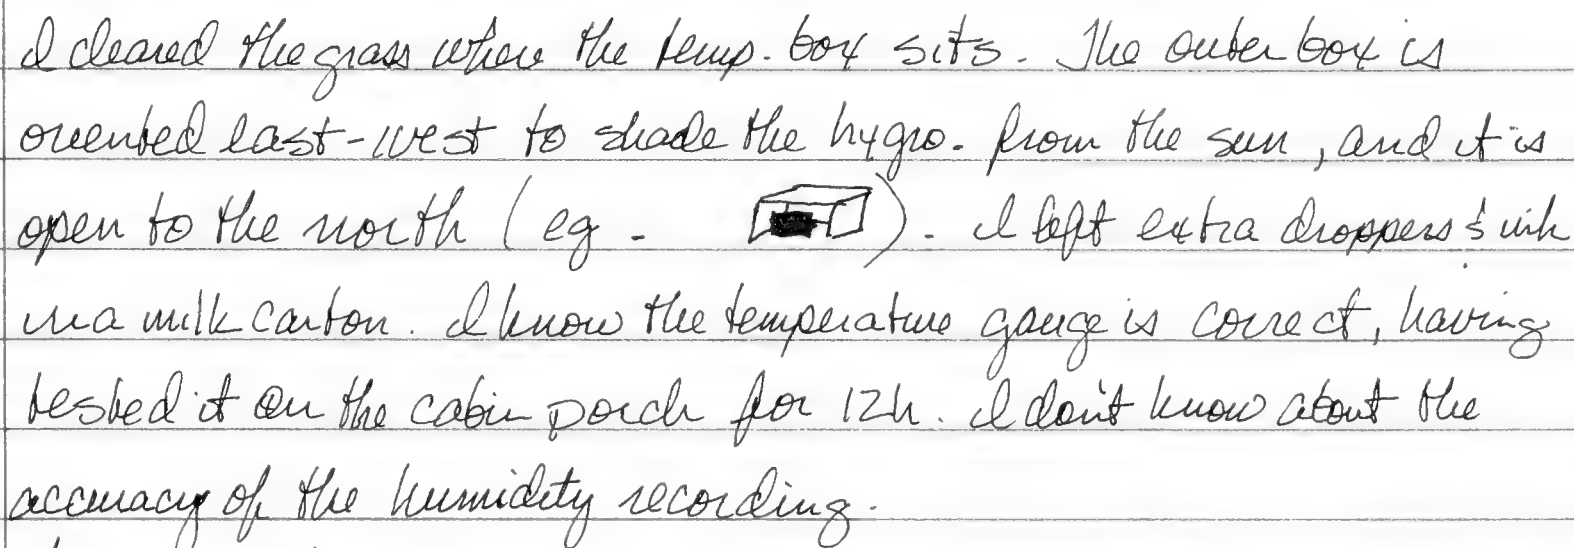 I cleared the grass where the temp. box sits. The outer box is
oriented east-west to shade the hygro. from the sun, and it is
open to the north (eg. ). I left extra droppers & ink
in a milk carton. I know the temperature gauge is correct, having
tested it on the cabin porch for 12h. I don't know about the
accuracy of the humidity recording.